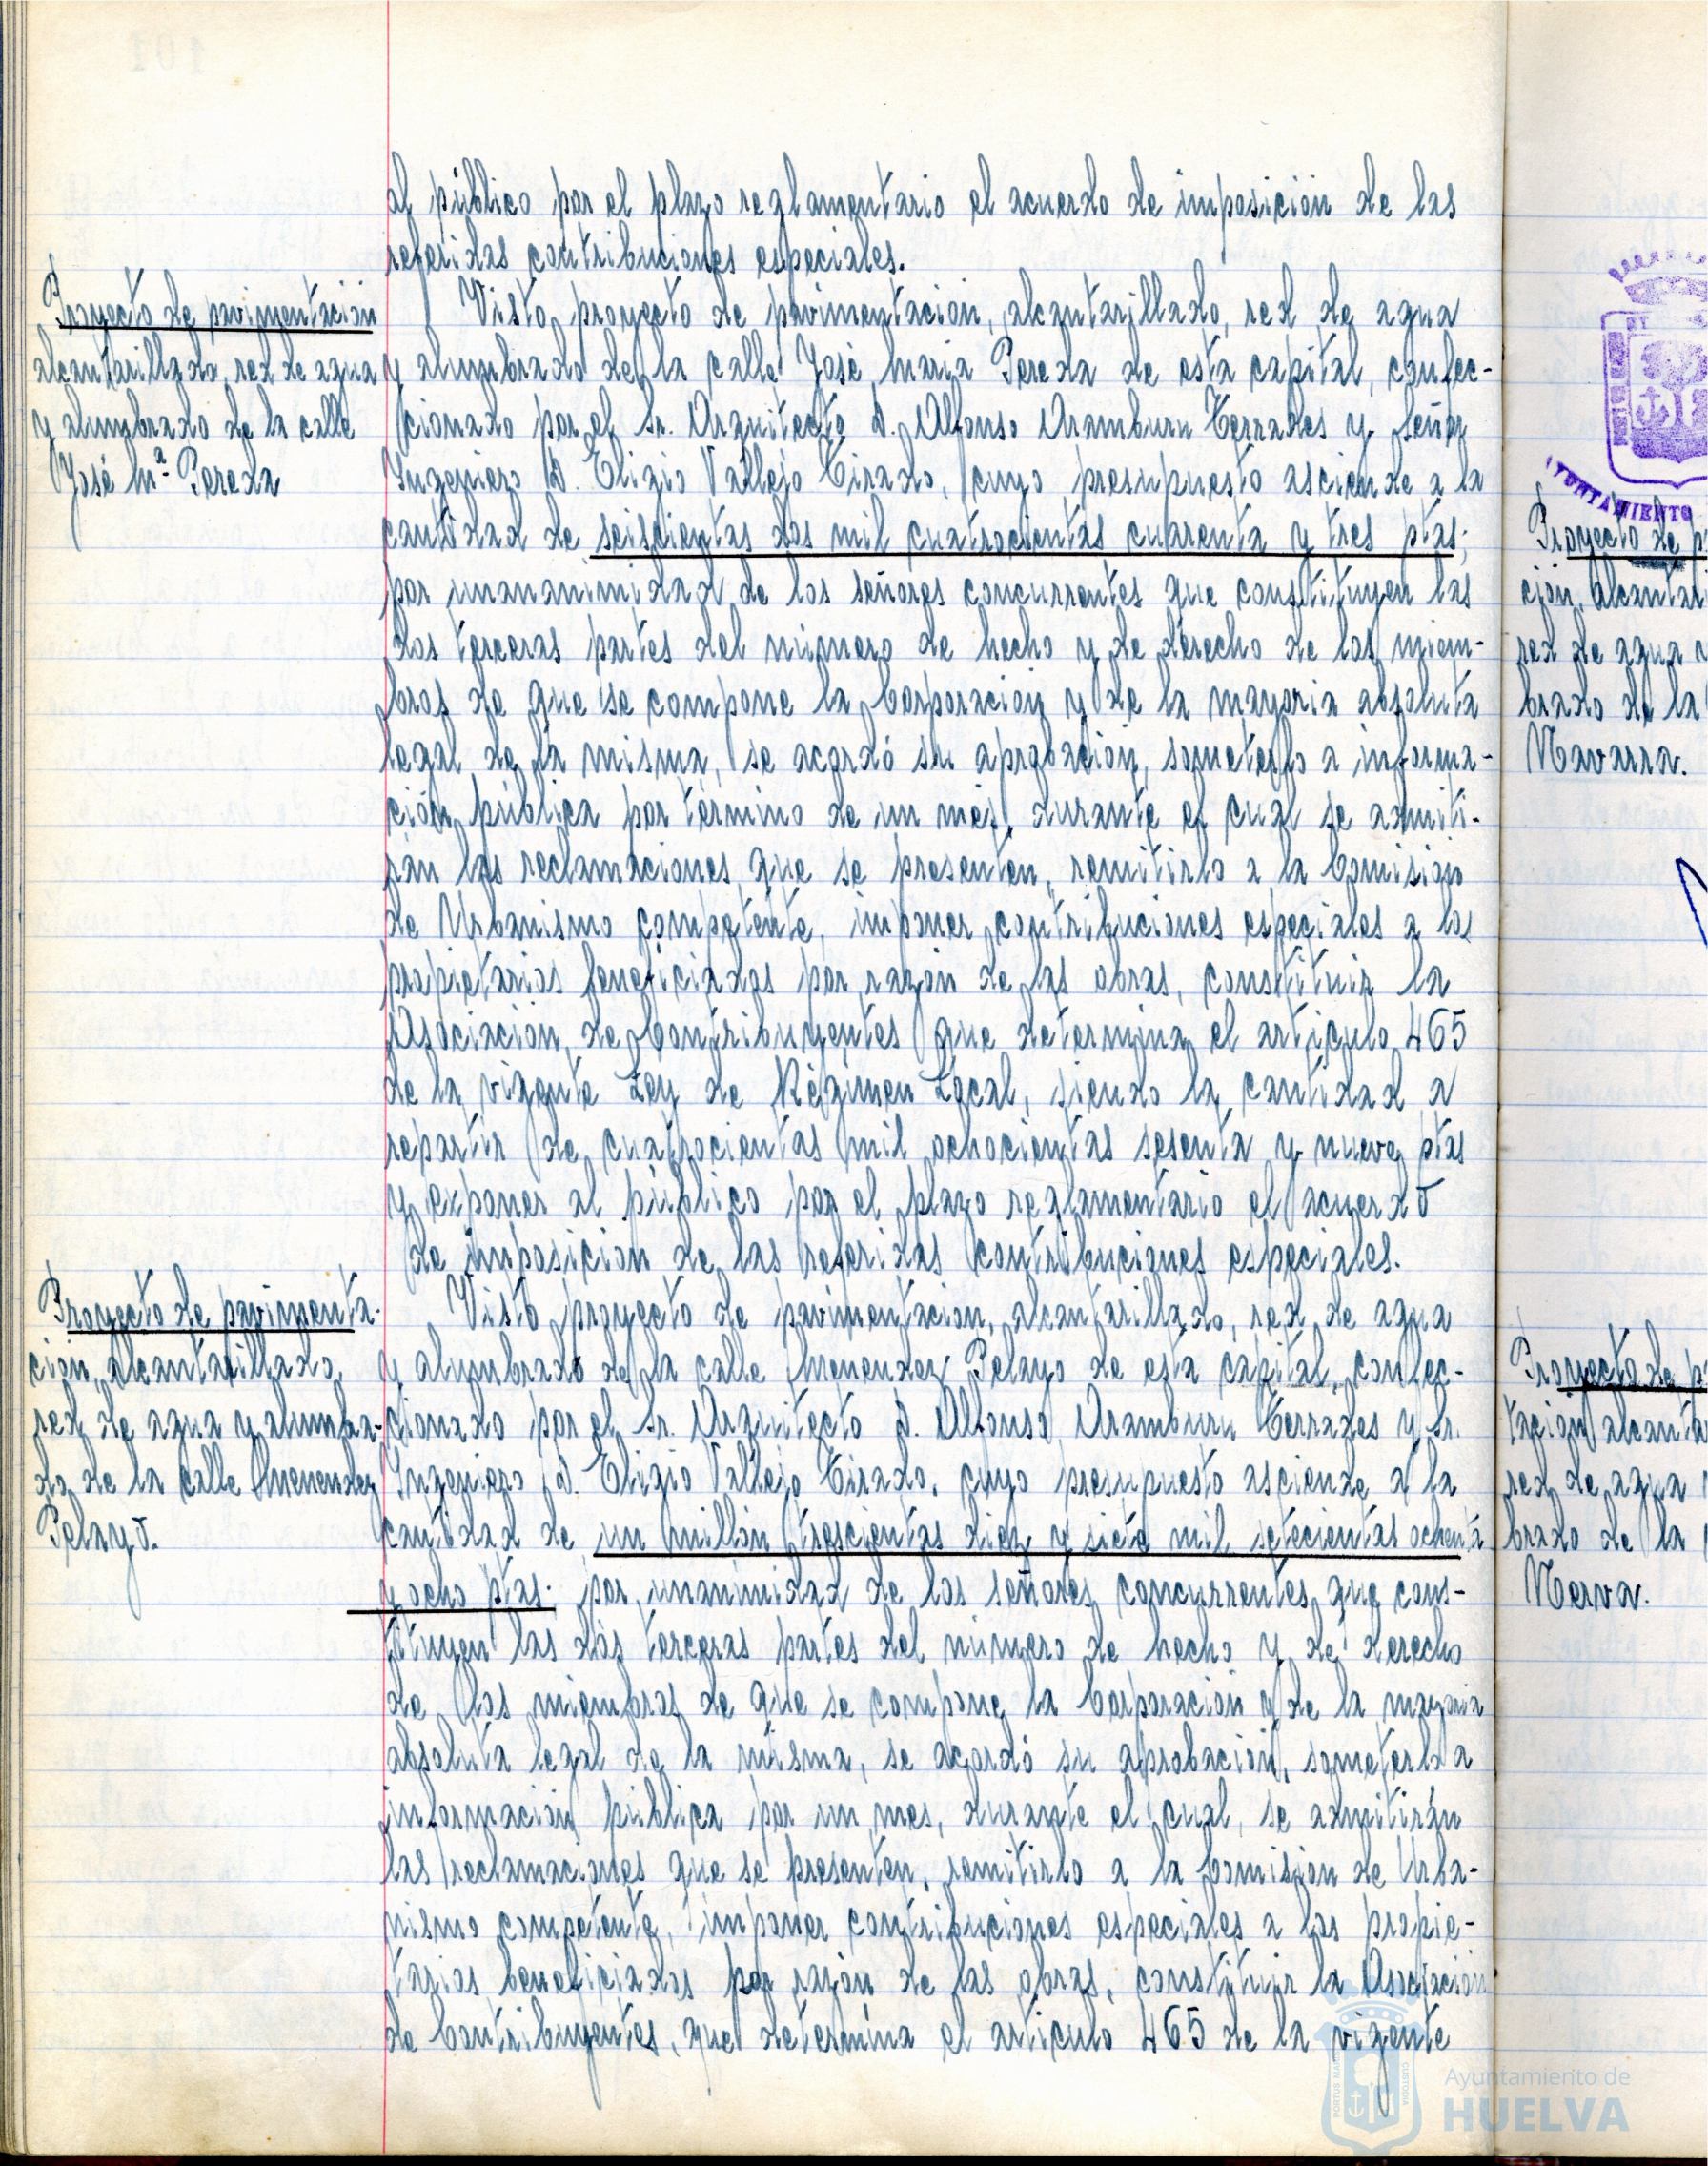 al público por el plazo reglamentario el acuerdo de imposición de las
referidas contribuciones especiales.
Proyecto de pavimentación
alcantarillado, red de agua
y alumbrado de la calle
José Mª Pereda
Visto proyecto de pavimentación, alcantarillado, red de agua
y alumbrado de la calle José Maria Pereda de esta capital, confec-
cionado por el Sr. Arquitecto D. Alfonso Aramburu Terrades y Señor
Ingeniero D. Eligio Vallejo Tirado, cuyo presupuesto asciende a la
cantidad de seiscientas dos mil cuatrocientas cuarenta y tres ptas;
por unananimidad de los señores concurrentes que constituyen las
dos terceras partes del número de hecho y de derecho de los miem-
bros de que se compone la Corporación y de la mayoria absoluta
legal de la misma, se acordó su aprobación, someterlo a informa-
ción pública por término de un mes, durante el cual se admiti-
rán las reclamaciones que se presenten, remitirlo a la Comision
de Urbanismo competente, imponer contribuciones especiales a los
propietarios beneficiados por razón de las obras, constituir la
Asociación de Contribuyentes que determina el articulo 465
de la vigente Ley de Régimen Local, siendo la cantidad a
repartir de cuatrocientas mil ochocientas sesenta y nueve ptas
y exponer al público por el plazo reglamentario el acuerdo
de imposición de las referidas contribuciones especiales.
Proyecto de pavimenta-
ción, alcantarillado,
red de agua y alumbra-
do de la calle Menendez
Pelayo.
Visto proyecto de pavimentacion, alcantarillado, red de agua
y alumbrado de la calle Menendez Pelayo de esta capital, confec-
cionado por el Sr. Arquitecto D. Alfonso Aramburu Terrades y Sr.
Ingeniero D. Eligio Vallejo Tirado, cuyo presupuesto asciende a la
cantidad de un millón trescientas diez y siete mil setecientas ochenta
y ocho ptas; por unanimidad de los señores concurrentes que cons-
tituyen las dos terceras partes del número de hecho y de derecho
de los miembros de que se compone la Corporación y de la mayoria
absoluta legal de la misma, se acordó su aprobación, someterlo a
información pública por un mes, durante el cual, se admitirán
las reclamaciones que se presenten, remitirlo a la Comision de Urba-
nismo competente, imponer contribuciones especiales a los propie-
tarios beneficiados por razón de las obras, constituir la Asociación
de Contribuyentes, que determina el articulo 465 de la vigente
Proyecto de p
ción, alcantar
red de agua
brado de la
Navarra.
Proyecto de p
tación alcanta
red de agua
brado de la
Nerva.
Ayuntamiento de
HUELVA